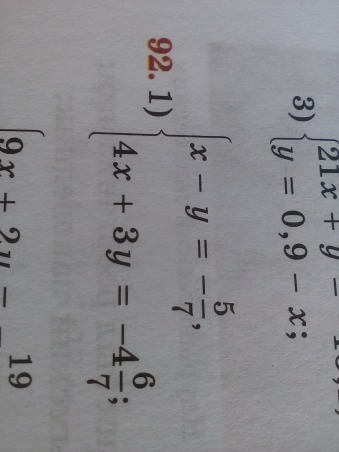 3) { 21x + y =
y = 0,9 − x;
92. 1) { x − y = −5/7,
4x + 3y = −4 6/7;
9x + 2y =
19